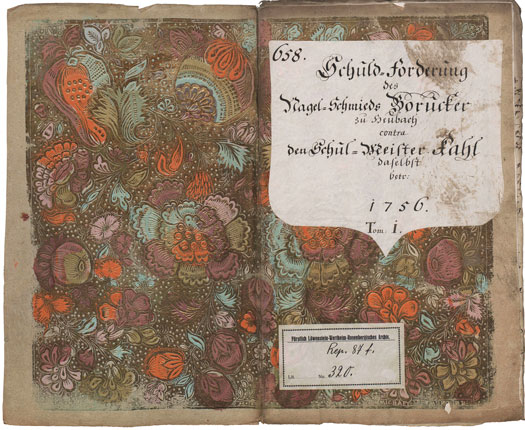 658.
Schuld-Forderung
des
Nagel-Schmieds Vorucker
zu Heubach
contra
den Schul-Meister Kahl
daselbst
betr:
1756.
Tom. I.
Fürstlich Löwenstein-Wertheim-Rosenbergisches Archiv.
Rep. 84 f.
Lit. No. 320.